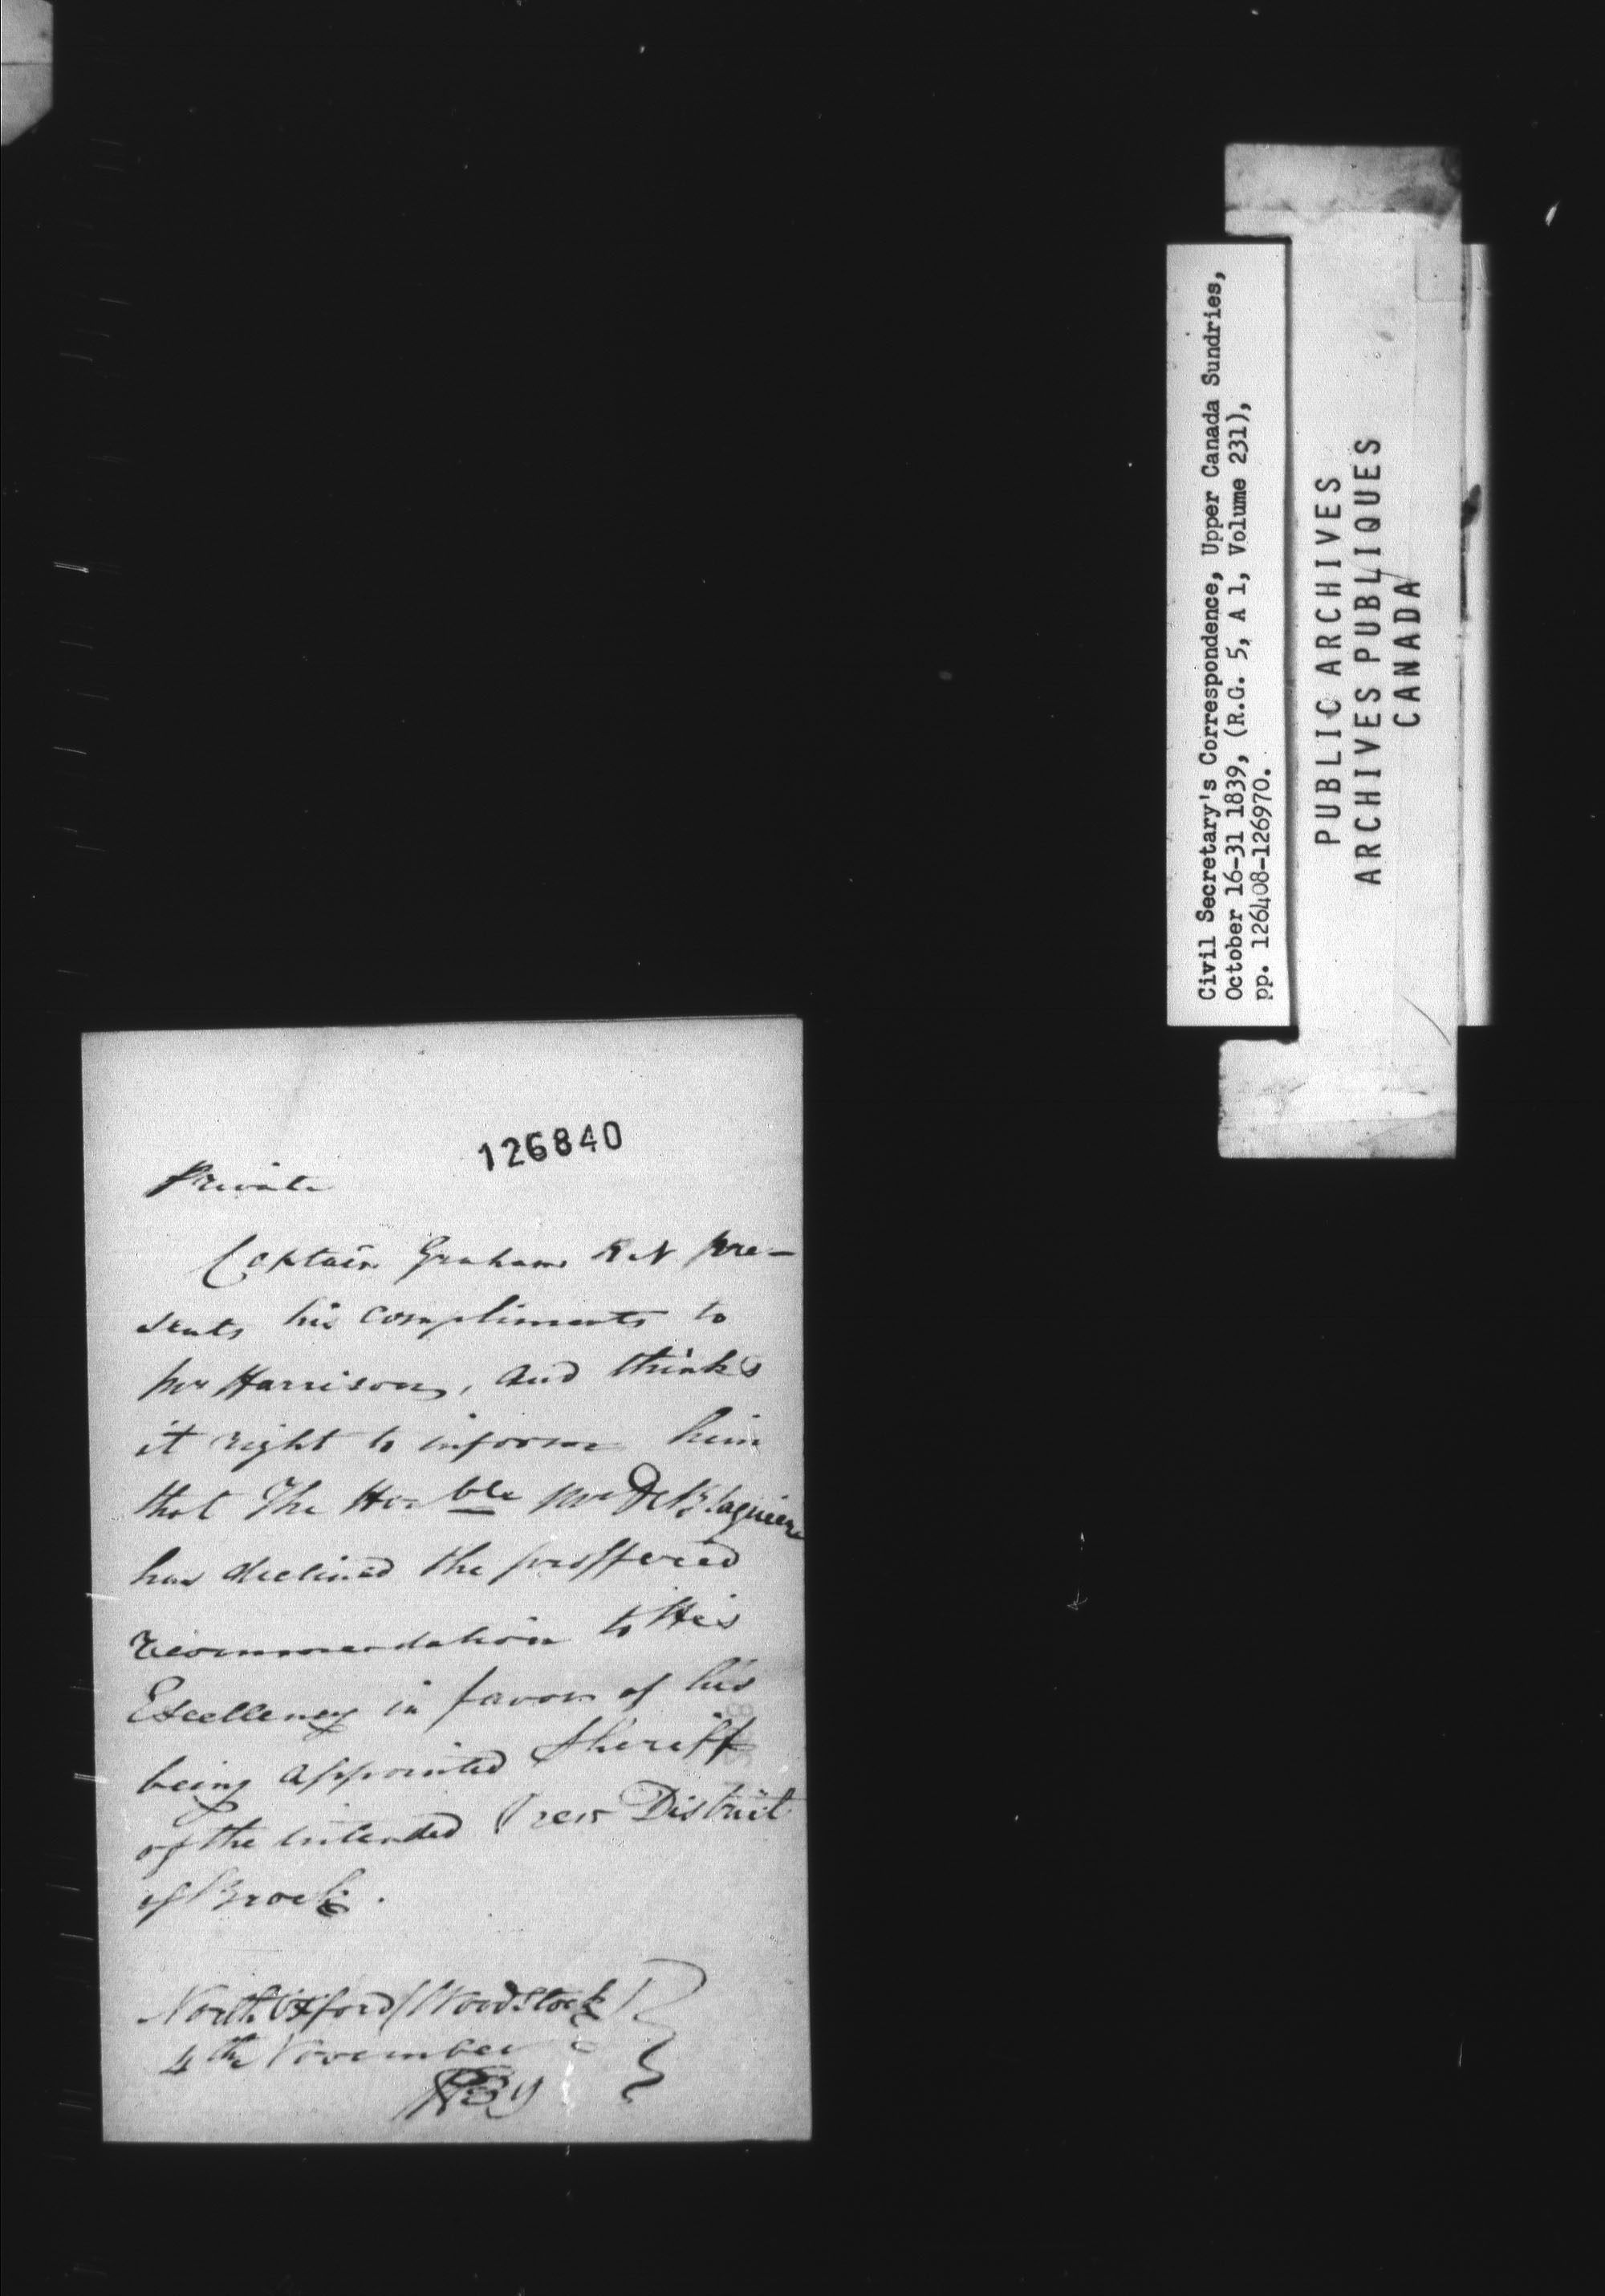 126840
Private
Captain Graham R N pre-
sents his compliments to
Mr Harrison, and thinks
it right to inform him
that The Hon ble Mr De Blaquiere
has declined the proffered
recommendation to His
Excellency in favor of his
being appointed Sheriff
of the intended New District
of Brock.
North Oxford (Woodstock)
4th November
1839
Civil Secretary's Correspondence, Upper Canada Sundries,
October 16-31 1839, (R.G. 5, A 1, Volume 231),
pp. 126408-126970.
PUBLIC ARCHIVES
ARCHIVES PUBLIQUES
CANADA